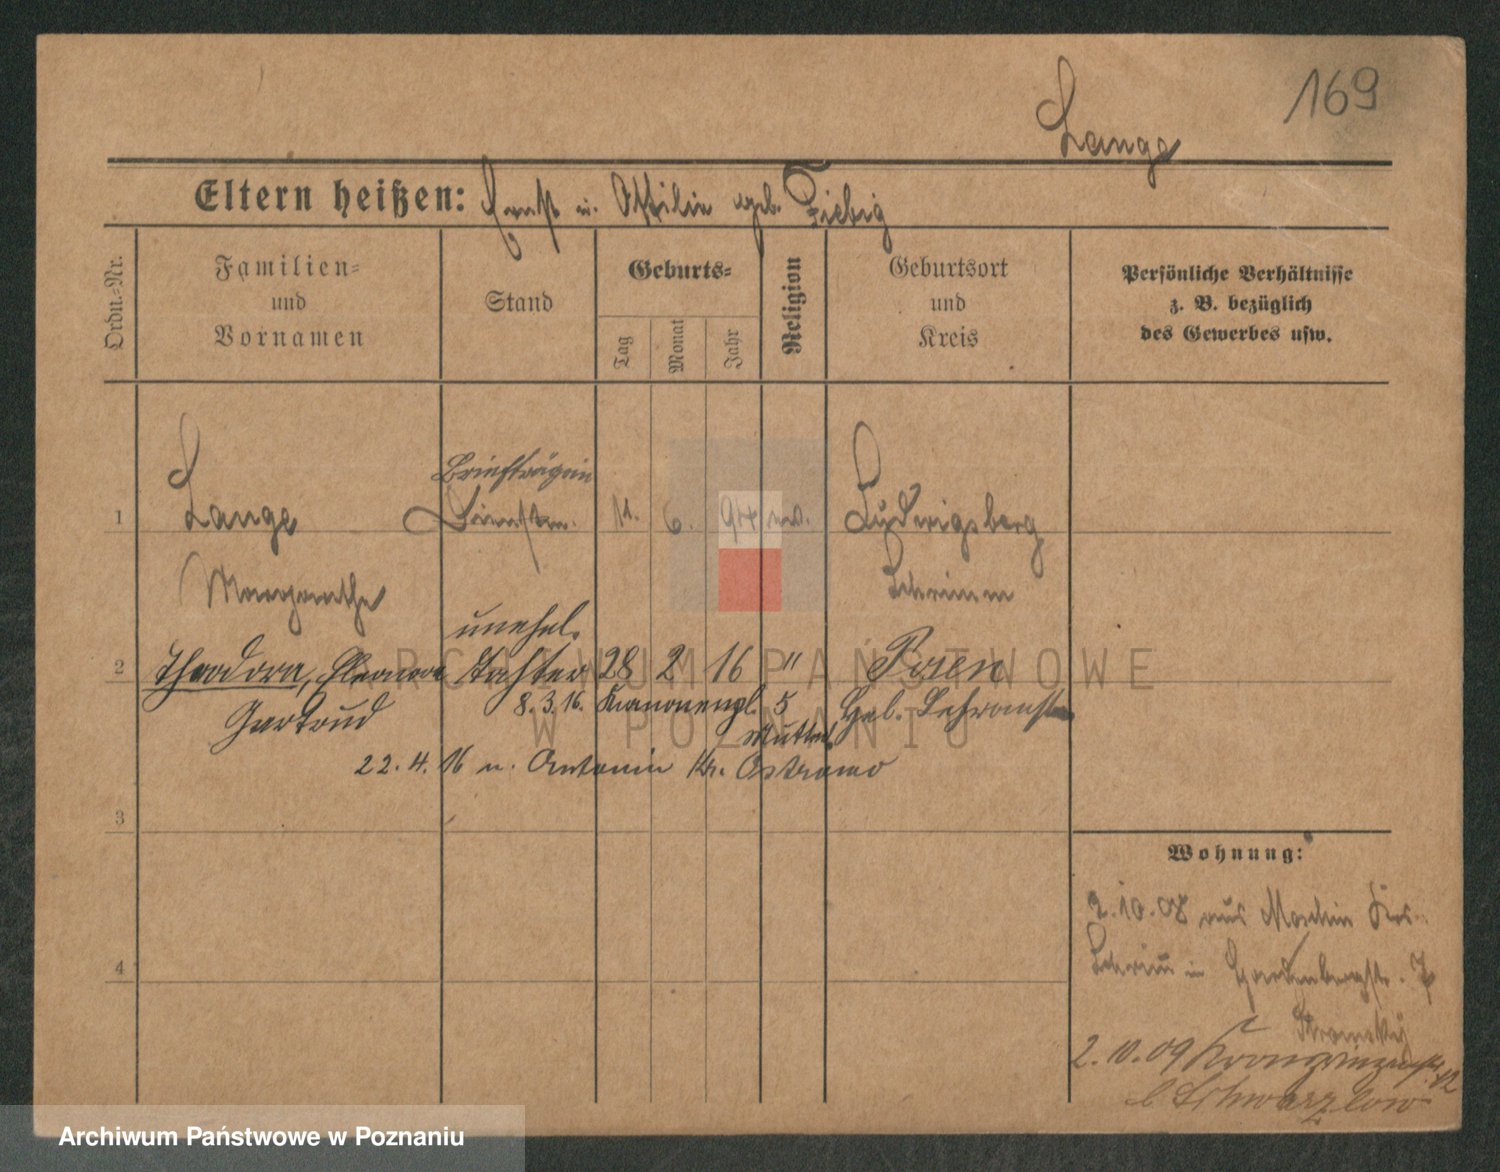 169
Lange
Eltern heißen: Ernst u. Ottilie geb. Fiebig
Ordn.-Nr.
Familien-
und
Vornamen
Stand
Geburts-
Tag
Monat
Jahr
Religion
Geburtsort
und
Kreis
Persönliche Verhältnisse
z. B. bezüglich
des Gewerbes usw.
Briefträgerin
1 Lange 11. 6. 94 ev. Ludwigsberg
Margarethe Schrimm
unehel.
2 Theodora, Eleonore Tochter 28 2 16 " Posen
Gertrud 8.3.16. Kanonenpl. 5 Heb.
Mutter
22.4.16 n. Antonin Kr. Ostrowo
3
4
Wohnung:
2.10.08 aus Moschin Krs.
Schrimm in Hardenbergstr. 7
2.10.09 Kronprinzenstr. 12
b Schwarzlow
ARCHIWUM PAŃSTWOWE
W POZNANIU
Archiwum Państwowe w Poznaniu